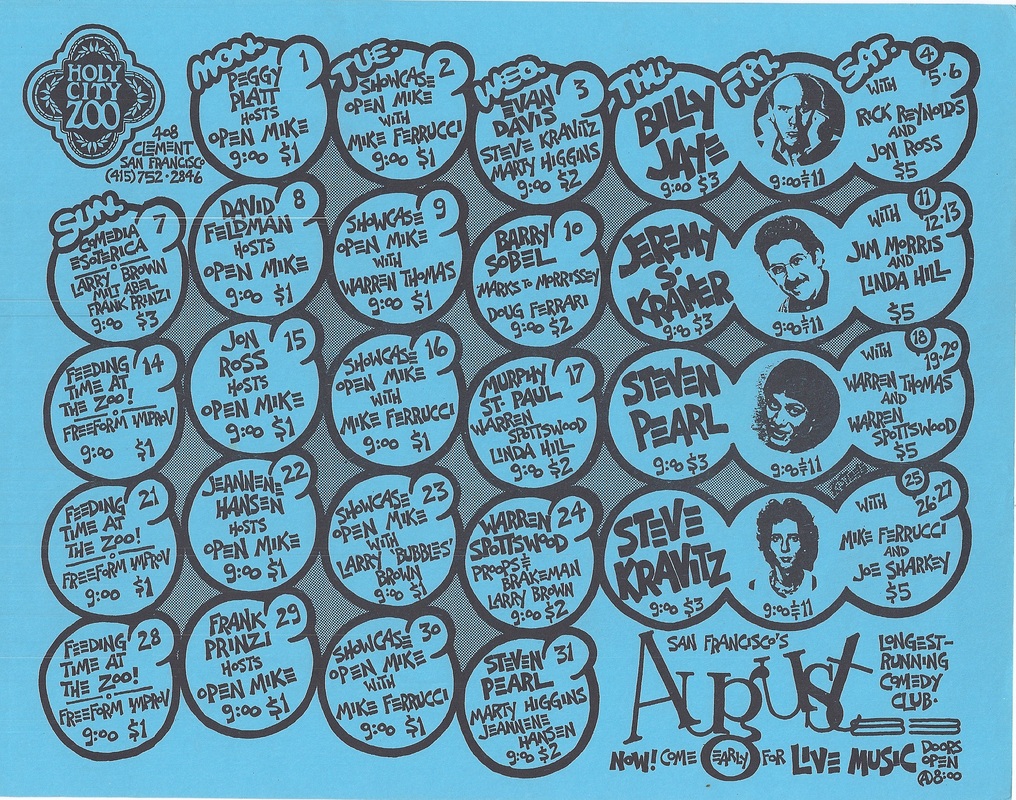 HOLY
CITY
ZOO
408
CLEMENT
SAN FRANCISCO
(415) 752-2846
MON.
1
PEGGY
PLATT
HOSTS
OPEN MIKE
9:00 $1
TUE.
2
SHOWCASE
OPEN MIKE
WITH
MIKE FERRUCCI
9:00 $1
WED.
3
EVAN
DAVIS
STEVE KRAVITZ
MARTY HIGGINS
9:00 $2
THU.
BILLY
JAYE
9:00 $3
FRI.
9:00 & 11
SAT.
4
5·6
WITH
RICK REYNOLDS
AND
JON ROSS
$5
SUN.
7
COMEDIA
ESOTERICA
LARRY BROWN
MILT ABEL
FRANK PRINZI
9:00 $3
8
DAVID
FELDMAN
HOSTS
OPEN MIKE
9:00 $1
9
SHOWCASE
OPEN MIKE
WITH
WARREN THOMAS
9:00 $1
10
BARRY
SOBEL
MARKS TO MORRISSEY
DOUG FERRARI
9:00 $2
JEREMY
S.
KRAMER
9:00 $3
9:00 & 11
11
12·13
WITH
JIM MORRIS
AND
LINDA HILL
$5
14
FEEDING
TIME AT
THE ZOO!
FREEFORM IMPROV
9:00 $1
15
JON
ROSS
HOSTS
OPEN MIKE
9:00 $1
16
SHOWCASE
OPEN MIKE
WITH
MIKE FERRUCCI
9:00 $1
17
MURPHY
ST. PAUL
WARREN
SPOTTSWOOD
LINDA HILL
9:00 $2
STEVEN
PEARL
9:00 $3
9:00 & 11
18
19·20
WITH
WARREN THOMAS
AND
WARREN
SPOTTSWOOD
$5
21
FEEDING
TIME AT
THE ZOO!
FREEFORM IMPROV
9:00 $1
22
JEANNENE
HANSEN
HOSTS
OPEN MIKE
9:00 $1
23
SHOWCASE
OPEN MIKE
WITH
LARRY 'BUBBLES'
BROWN
9:00 $1
24
WARREN
SPOTTSWOOD
PROOPS &
BRAKEMAN
LARRY BROWN
9:00 $2
STEVE
KRAVITZ
9:00 $3
9:00 & 11
25
26·27
WITH
MIKE FERRUCCI
AND
JOE SHARKEY
$5
28
FEEDING
TIME AT
THE ZOO!
FREEFORM IMPROV
9:00 $1
29
FRANK
PRINZI
HOSTS
OPEN MIKE
9:00 $1
30
SHOWCASE
OPEN MIKE
WITH
MIKE FERRUCCI
9:00 $1
31
STEVEN
PEARL
MARTY HIGGINS
JEANNENE
HANSEN
9:00 $2
SAN FRANCISCO'S
August
LONGEST-
RUNNING
COMEDY
CLUB.
NOW! COME EARLY FOR LIVE MUSIC DOORS
OPEN
@8:00